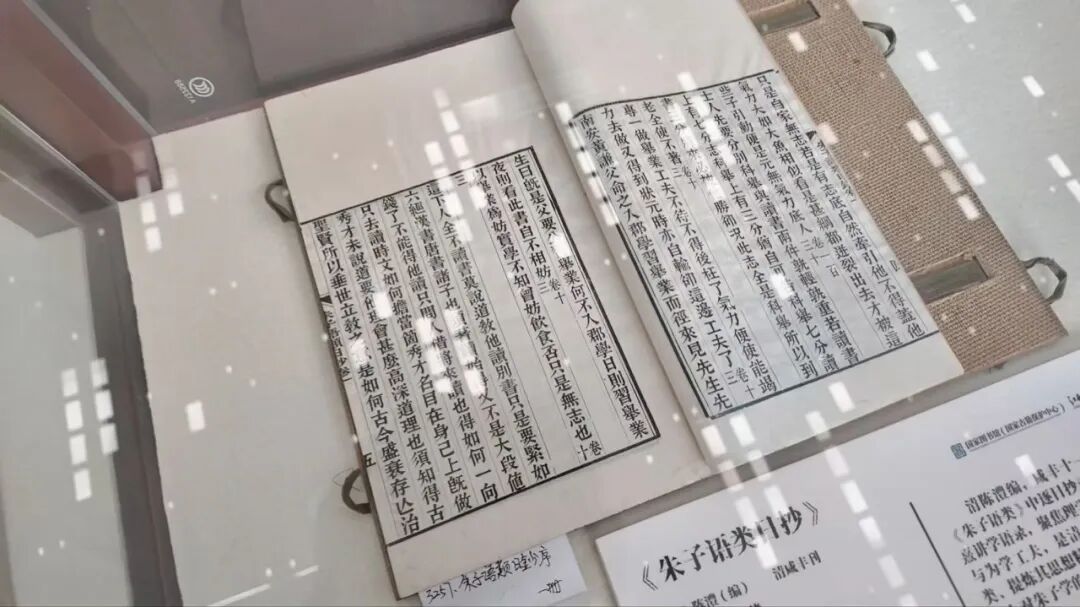 只是自家無志若是有志底自然牽引他不得蓋他
氣力大如大魚相似看是甚網都迸裂出去才被這
些子引動便是元無氣力底人
士人先要分別科舉與讀書兩件孰輕孰重若讀書
上有七分志科舉上有三分猶自
勝卻況此志全是科舉所以到
老全使不著
專一做舉業工夫不待不得後枉了氣力便使能竭
力去做又得到狀元時亦自輸卻這邊工夫了
南安黃謙父命之入郡學習舉業而徑來見先生先
生曰既是父要
舉業何不入郡學日則習舉業
夜則看此書自不相妨
舉業為妨實學不知曾妨飲食否只是無志也
不是大段值
遑下人全不讀書莫說道教他讀別書只是要緊如
六經漢書唐書諸子
須著讀
又不是大段值
錢了不能得他讀只問人借將來讀也得如何一向
只去讀時文如何擔當箇秀才名目在身己上既做
秀才未說道要他理會甚麼高深道理也須知得古
聖賢所以垂世立教之
是如何古今盛衰存亡治
五
3257.朱子語類日抄
一册
《朱子语类日抄》
清咸丰刊
陈澧（编）
国家图书馆（国家古籍保护中心）
清陈澧编，咸丰十一
《朱子语类》中逐日抄
熹讲学语录，聚焦
与为学工夫，是清
类，提炼其思想